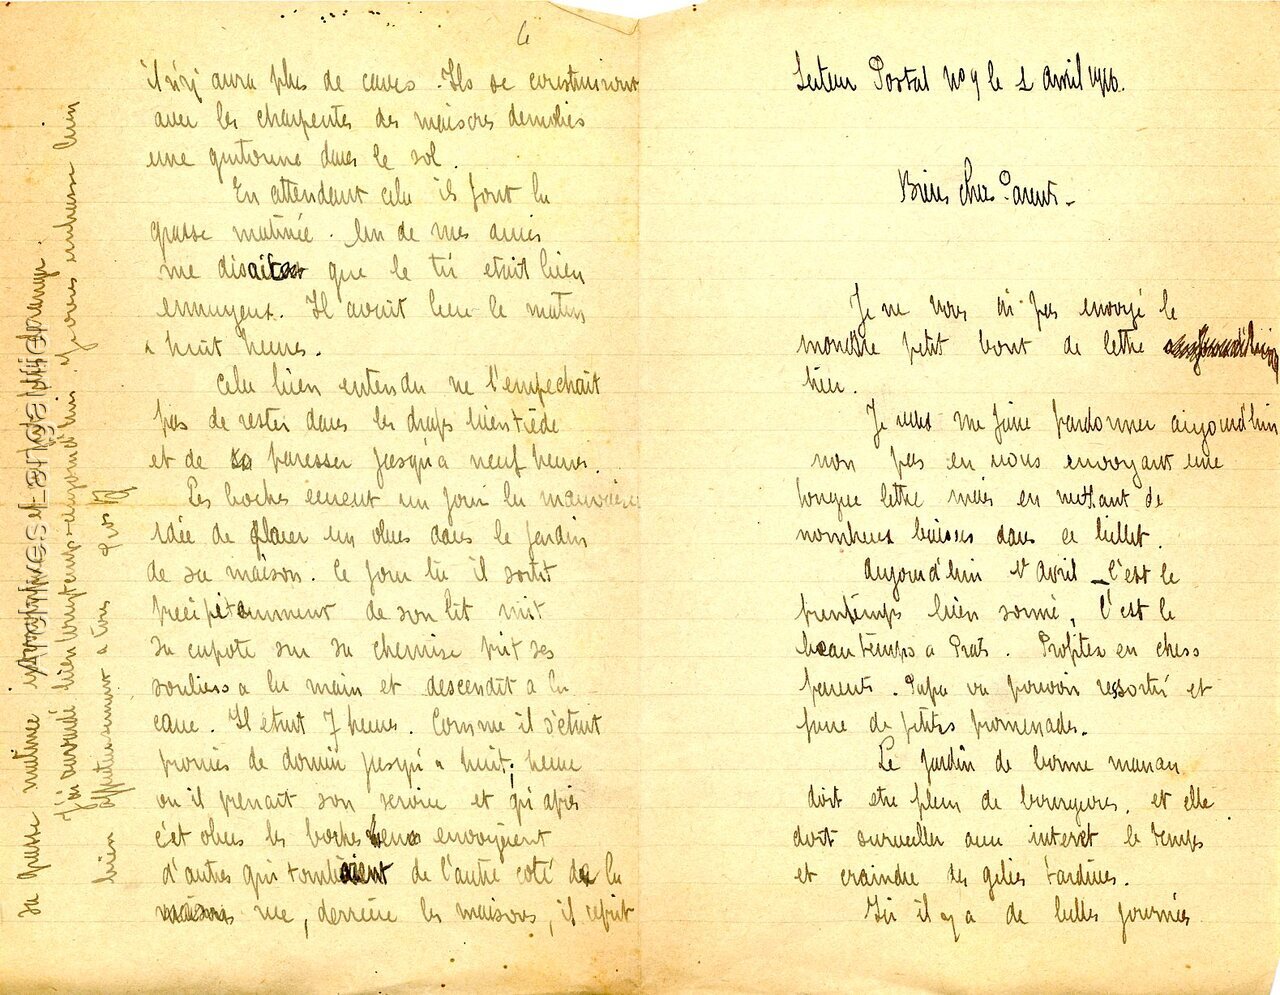 Secteur Postal No 9 le 1 avril 1916.
Biens chers Parents -
Je ne vous ai pas envoyé le
moindre petit bout de lettre
hier.
Je veux me faire pardonner aujourd'hui
non pas en vous envoyant une
longue lettre mais en mettant de
nombreux baisers dans ce billet.
Aujourd'hui 1er Avril _ C'est le
printemps bien sonné, C'est le
beau temps a Prats. Profitez en chers
parents. Papa va pouvoir ressortir et
faire de petites promenades.
Le jardin de bonne maman
doit etre plein de bourgeons, et elle
doit surveiller avec interet le temps
et craindre des gelées tardives.
Ici il y a de belles journées
4
il n'y aura plus de caves. Ils se construiront
avec les charpentes des maisons demolies
une guitoune dans le sol.
En attendant cela ils font la
grasse matinée. Un de mes amis
me disait que le tir etait bien
ennuyeux. Il avait lieu le matin
a huit heures.
Cela bien entendu ne l'empechait
pas de rester dans les draps bien tiède
et de paresser jusqu'a neuf heures.
Les boches eurent un jour la mauvaise
idée de placer un obus dans le jardin
de sa maison. Ce jour la il sortit
precipitamment de son lit mit
sa capote sur sa chemise prit ses
souliers a la main et descendit a la
cave. Il etait 7 heures. Comme il s'était
promis de dormir jusqu'a huit, heure
ou il prenait son service et qu'après
c'et obus les boches envoyaient
d'autres qui tombaient de l'autre coté de la
rue, derrière les maisons, il reprit
sa grasse matinée
J'ai bavardé bien longtemps aujourd'hui. Je vous embrasse bien
bien affectueusement a tous